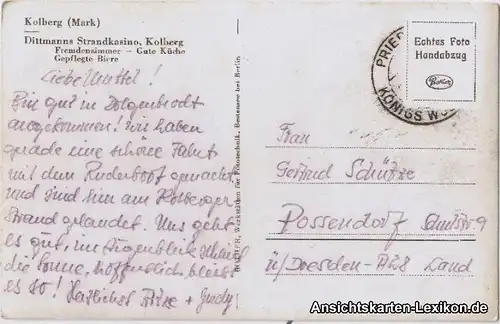 Kolberg (Mark)
Dittmanns Strandkasino, Kolberg
Fremdenzimmer – Gute Küche
Gepflegte Biere
Liebe Muttel!
Bin gut in Dolgenbrodt
angekommen! Wir haben
gerade eine schöne Fahrt
mit dem Ruderboot gemacht
und sind hier am Kolberger
Strand gelandet. Uns geht
es gut, im Augenblick scheint
die Sonne, hoffentlich bleibt
es so! Herzliche Grüße +
Echtes Foto
Handabzug
PRIE
KÖNIGS WUS
Frau
Gertrud Schütze
Possendorf
ü/Dresden-A28 Land
Ansichtskarten-Lexikon.de